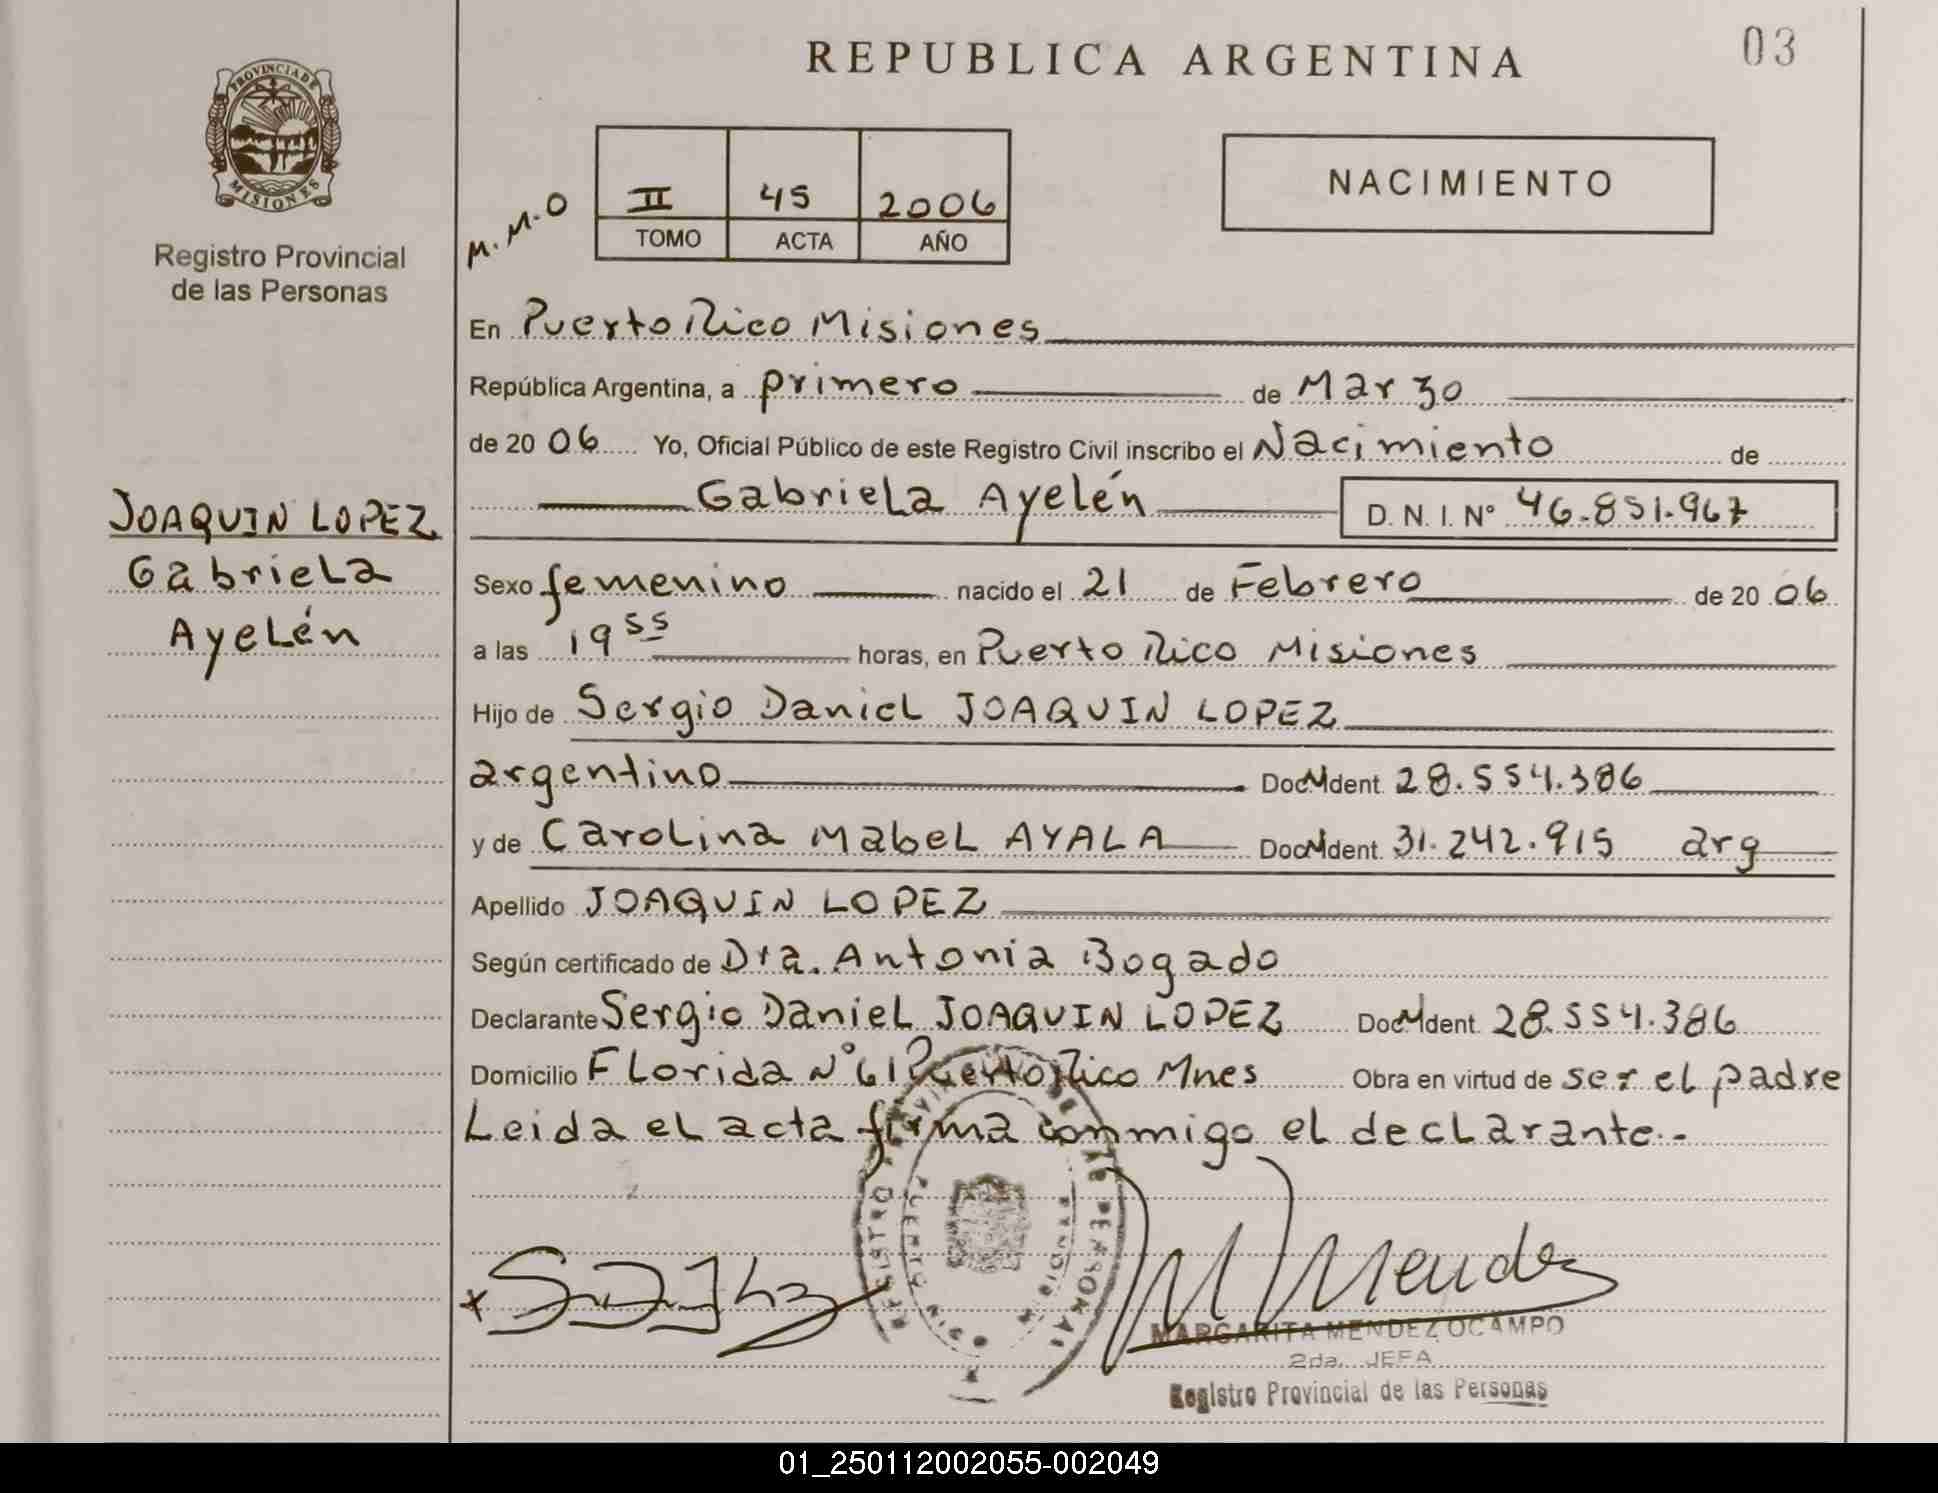 REPUBLICA ARGENTINA
03
PROVINCIA DE
MISIONES
Registro Provincial
de las Personas
M.M.O
II 45 2006
TOMO ACTA AÑO
NACIMIENTO
En Puerto Rico Misiones
República Argentina, a primero de Marzo
de 2006 Yo, Oficial Público de este Registro Civil inscribo el Nacimiento de
Gabriela Ayelén D. N. I. N° 46.851.967
JOAQUIN LOPEZ
Gabriela
Ayelén
Sexo femenino nacido el 21 de Febrero de 2006
a las 19 55 horas, en Puerto Rico Misiones
Hijo de Sergio Daniel JOAQUIN LOPEZ
argentino Doc M Ident. 28.554.386
y de Carolina Mabel AYALA Doc M Ident. 31.242.915 arg
Apellido JOAQUIN LOPEZ
Según certificado de Dra. Antonia Bogado
Declarante Sergio Daniel JOAQUIN LOPEZ Doc M Ident. 28.554.386
Domicilio Florida N° 61 Puerto Rico Mnes Obra en virtud de ser el padre
Leida el acta firma conmigo el declarante.-
REGISTRO PERSONAS
PUERTO
M Mendez
MARGARITA MENDEZ OCAMPO
2da. JEFA
Registro Provincial de las Personas
01_250112002055-002049